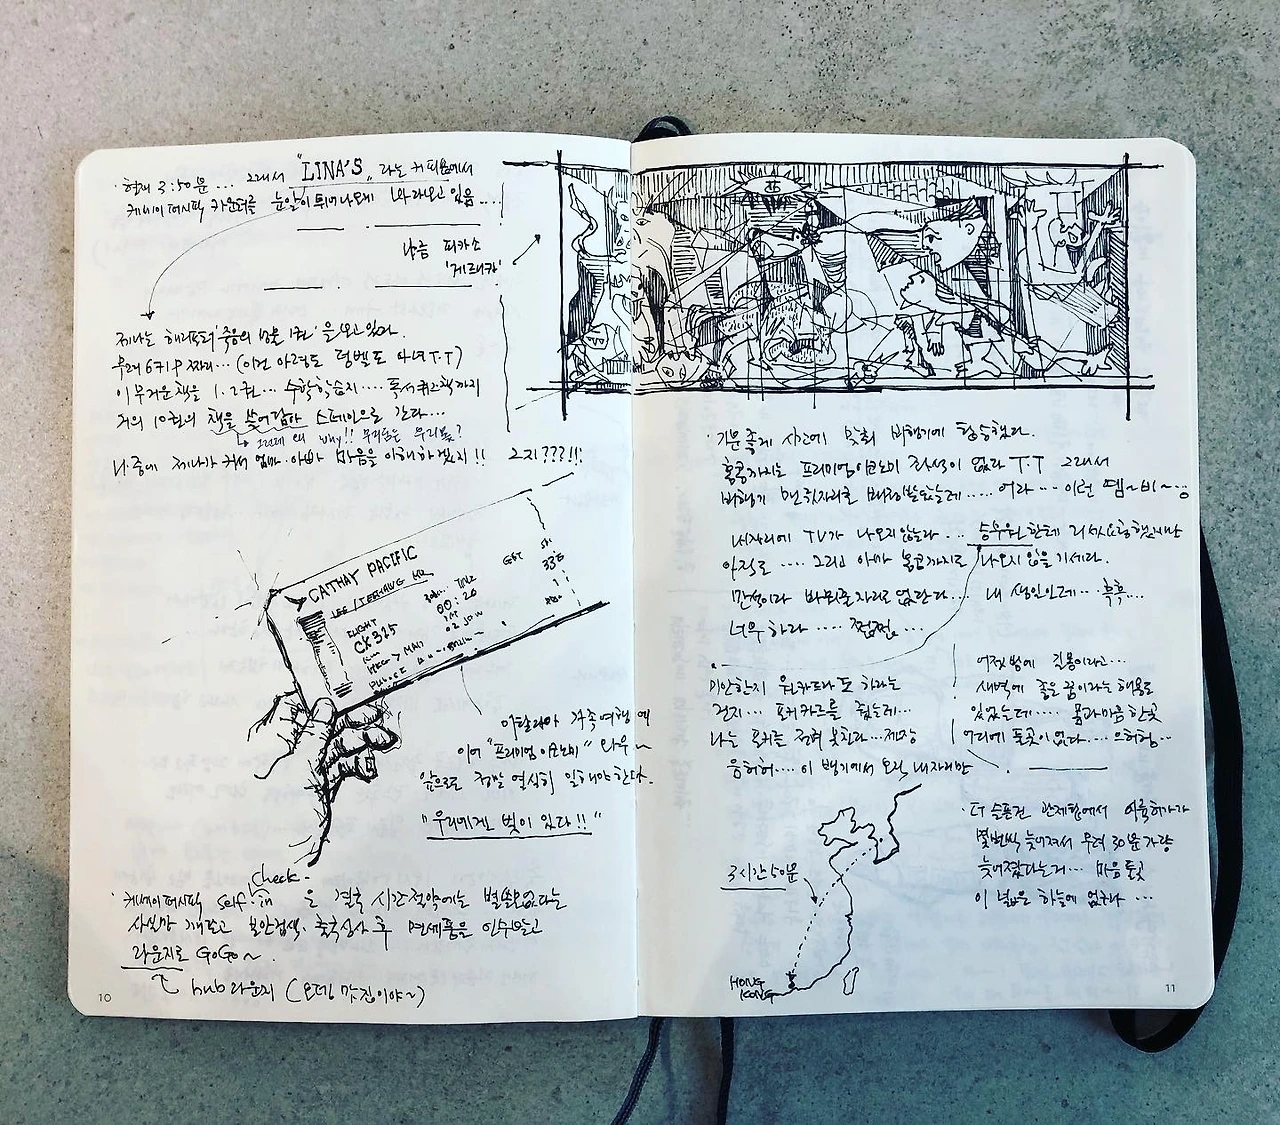 · 현재 3:50분... 그래서 "LINA'S" 라는 커피숍에서
케세이퍼시픽 카운터를 눈알이 튀어나오게 바라보고 있음....
나름 피카소
'게르니카'
제나는 해리포터 '죽음의 성물 1권'을 보고 있다.
무려 6키로 짜리... (이건 아령도 덤벨도 아녀 T.T)
이 무거운 책을 1.2권... 수학학습지.... 독서퀴즈책까지
거의 10권의 책을 쓸어담아 스페인으로 간다...
↳ 그런데 왜 why!!
나중에 제나가 커서 엄마·아빠 마음을 이해하겠지!! 그지???!!!
CATHAY PACIFIC
LEE / MR
FLIGHT
CX315
TIME
00:20
33G
HKG > MAD
이탈리아 가족여행에
이어 "프리미엄 이코노미" 와우~
앞으로 정말 열심히 일해야한다.
"우리에게도 빚이 있다!!"
· 케세이퍼시픽 self check-in 은 결국 시간절약에는 별쓸모없다는
사실만 깨닫고 보안검색·출국심사 후 면세품을 인수받고
라운지로 GoGo~.
hub라운지 (오뎅 맛집이야~)
10
· 기분좋게 시간에 맞춰 비행기에 탑승했다.
홍콩까지는 프리미엄이코노미 좌석이 없다 T.T 그래서
비행기 맨 뒷자리를 배정받았는데..... 어라... 이런 뗌~비~
내자리에 TV가 나오지않는다... 승무원한테 리셋요청했지만
아직도.... 그리고 아마 홍콩까지도 나오지 않을 기세다.
만석이라 바꿔줄자리도 없단다... 내 생일인데... 흑흑...
너무 하다..... 쩝쩝...
미안한지 원카드라도 하라는
건지... 포커카드를 줬는데...
나는 포커를 전혀 못친다...제장
음허허.... 이 뱅기에서 오직 내자리만
어젯밤에 길몽이라고...
새벽에 좋은 꿈이라는 해몽도
있었는데..... 몸과마음 한곳
어디에 둘곳이 없다.... 으허헝..
· 더 슬픈건 관제탑에서 이륙허가가
몇번씩 늦어져서 무려 30분가량
늦어졌다는거... 마음 둘곳
이 넓은 하늘에 없구나...
3시간50분
HONG
KONG
11